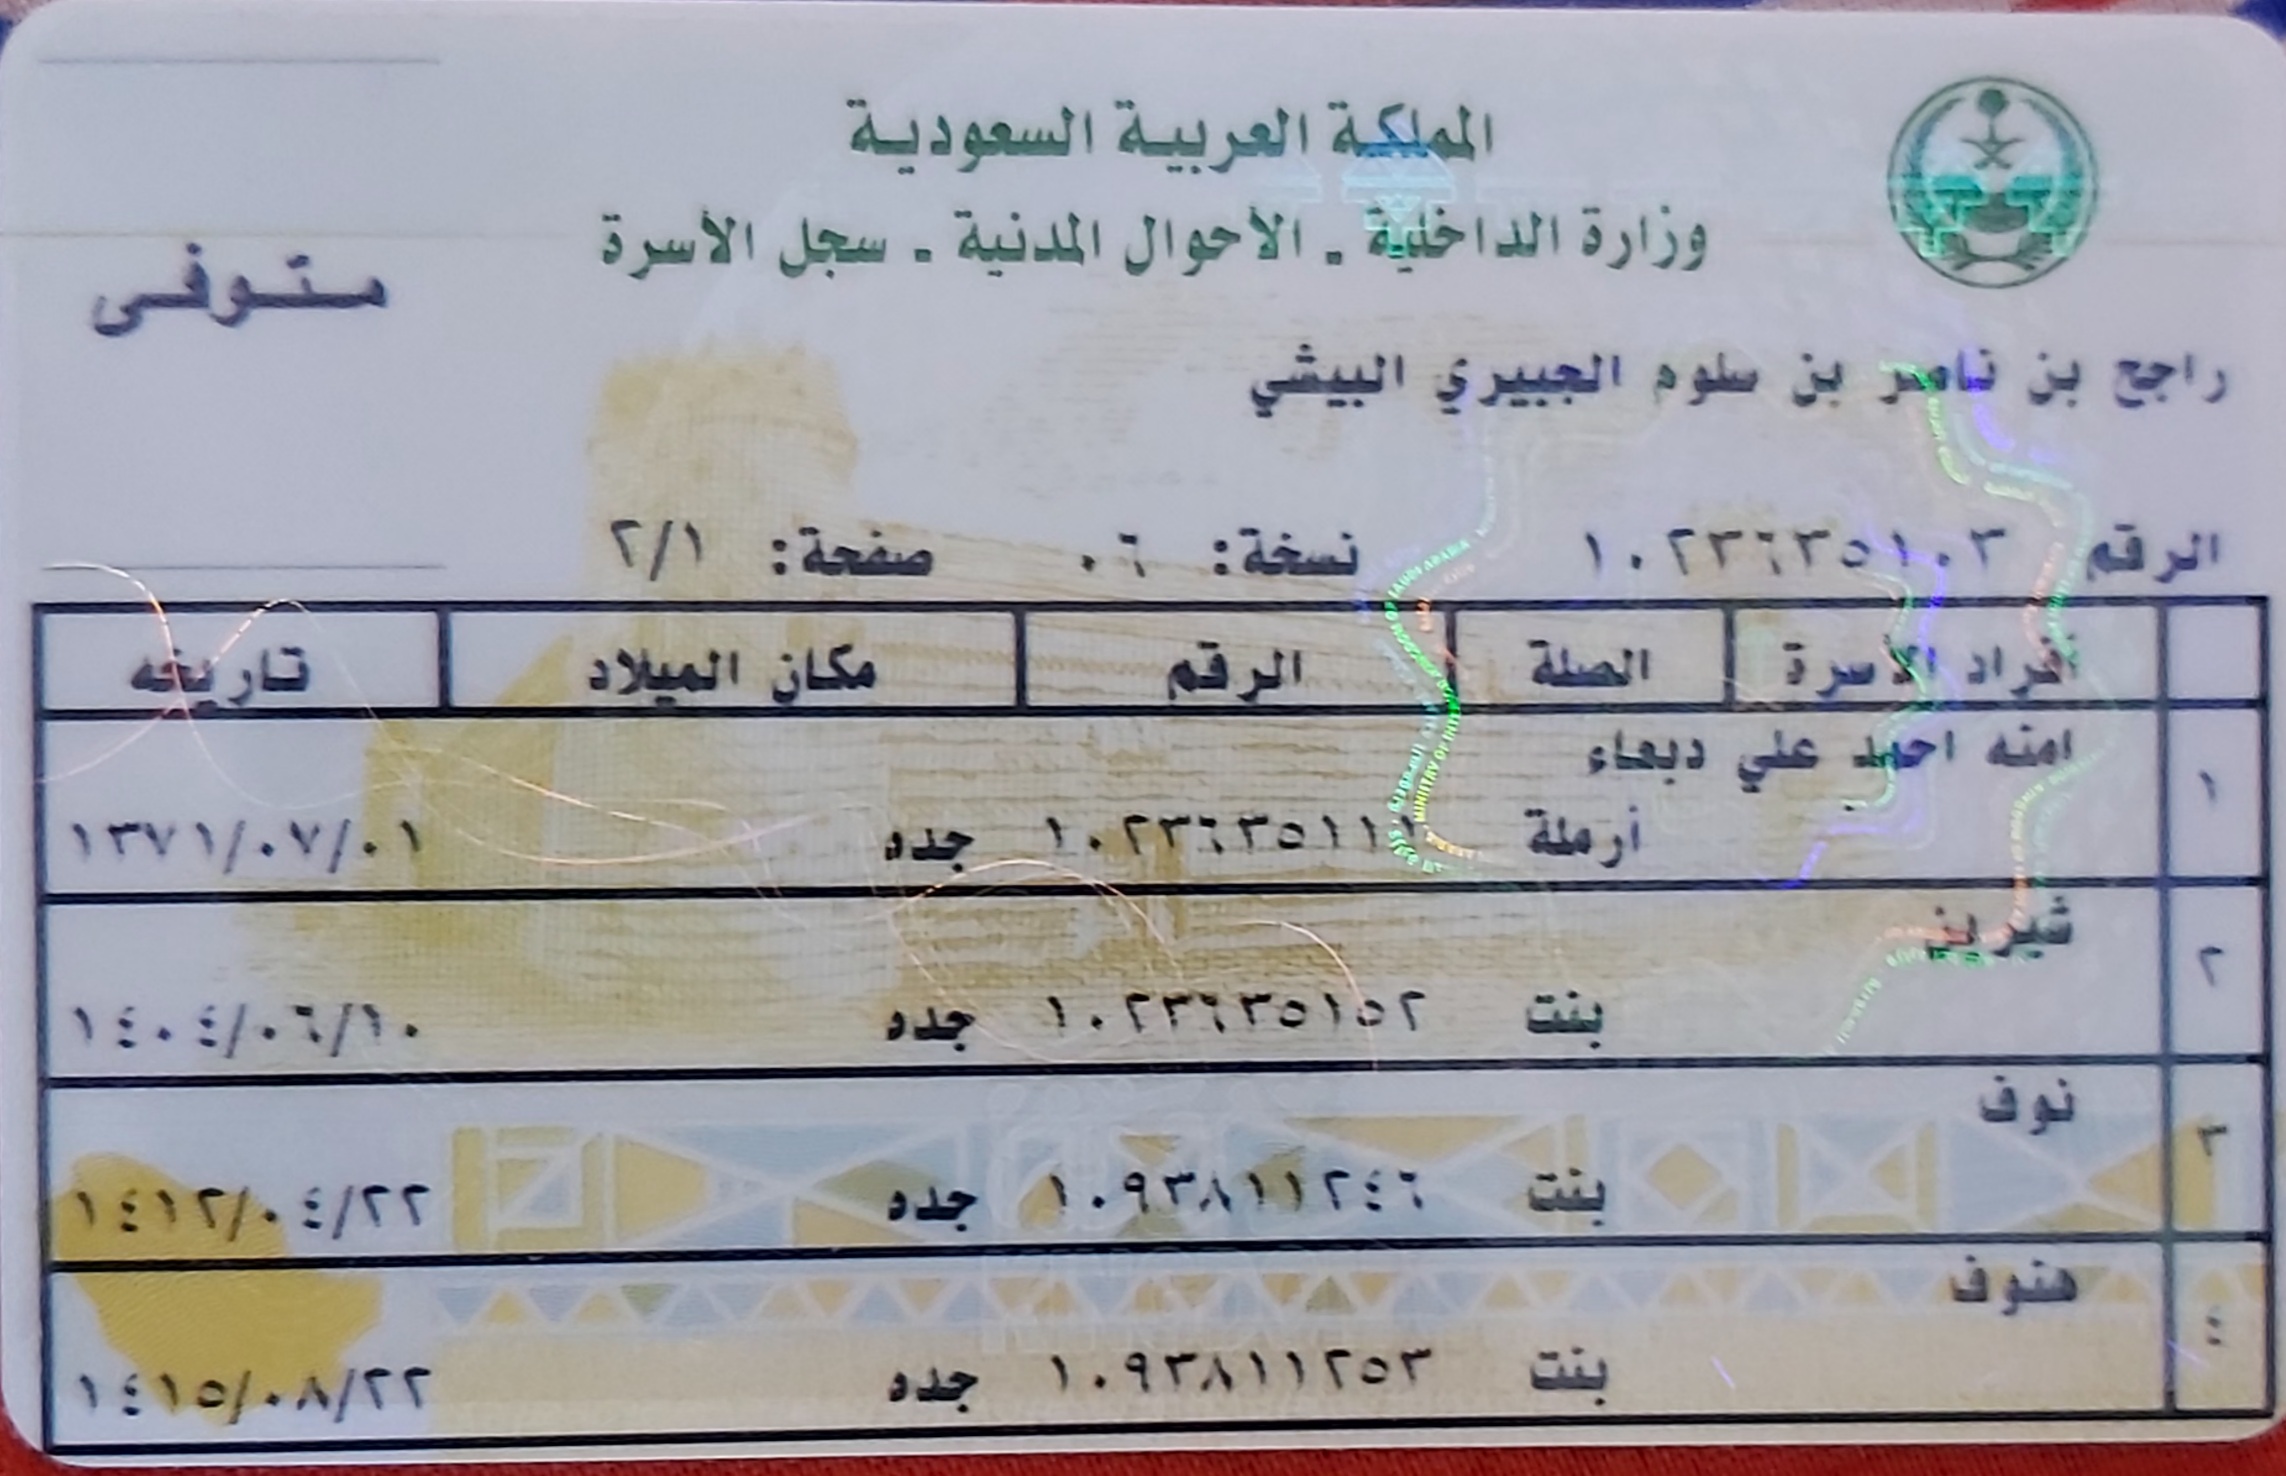 المملكة العربية السعودية
وزارة الداخلية - الأحوال المدنية - سجل الأسرة
متوفى
راجح بن ناصر بن سلوم الجبيري البيشي
الرقم ١٠٢٣٦٣٥١٠٣ نسخة: ٠٦ صفحة: ٢/١
أفراد الأسرة الصلة الرقم مكان الميلاد تاريخه
١ امنه احمد علي ديهاء
أرملة ١٠٢٣٦٣٥١١١ جده ١٣٧١/٠٧/٠١
٢ شيرين
بنت ١٠٢٣٦٣٥١٥٢ جده ١٤٠٤/٠٦/١٠
٣ نوف
بنت ١٠٩٣٨١١٢٤٦ جده ١٤١٢/٠٤/٢٢
٤ هنوف
بنت ١٠٩٣٨١١٢٥٣ جده ١٤١٥/٠٨/٢٢